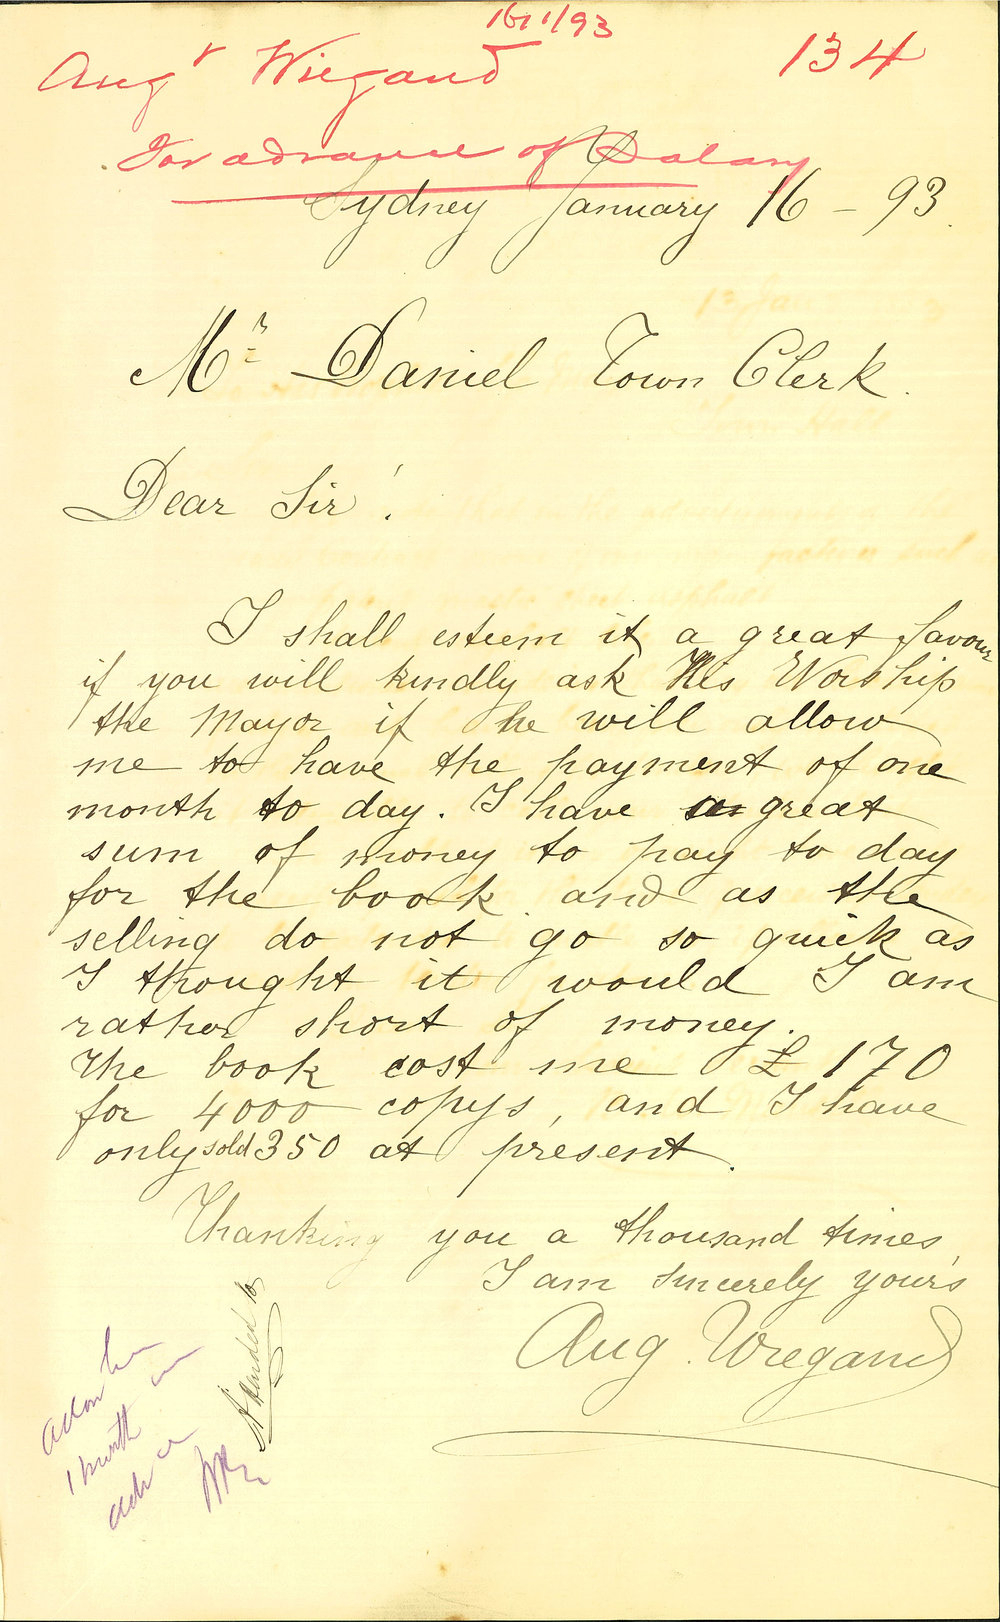 16/1/93
134
Augt Wiegand
For advance of Salary
Sydney January 16 - 93.
Mr Daniel Town Clerk.
Dear Sir!
I shall esteem it a great favour
if you will kindly ask His Worship
the Mayor if he will allow
me to have the payment of one
month to day. I have a great
sum of money to pay to day
for the book and as the
selling do not go so quick as
I thought it would I am
rather short of money.
The book cost me £170
for 4000 copys, and I have
only sold 350 at present.
Thanking you a thousand times,
I am sincerely your's
Aug. Wiegand
Attended to
1 month